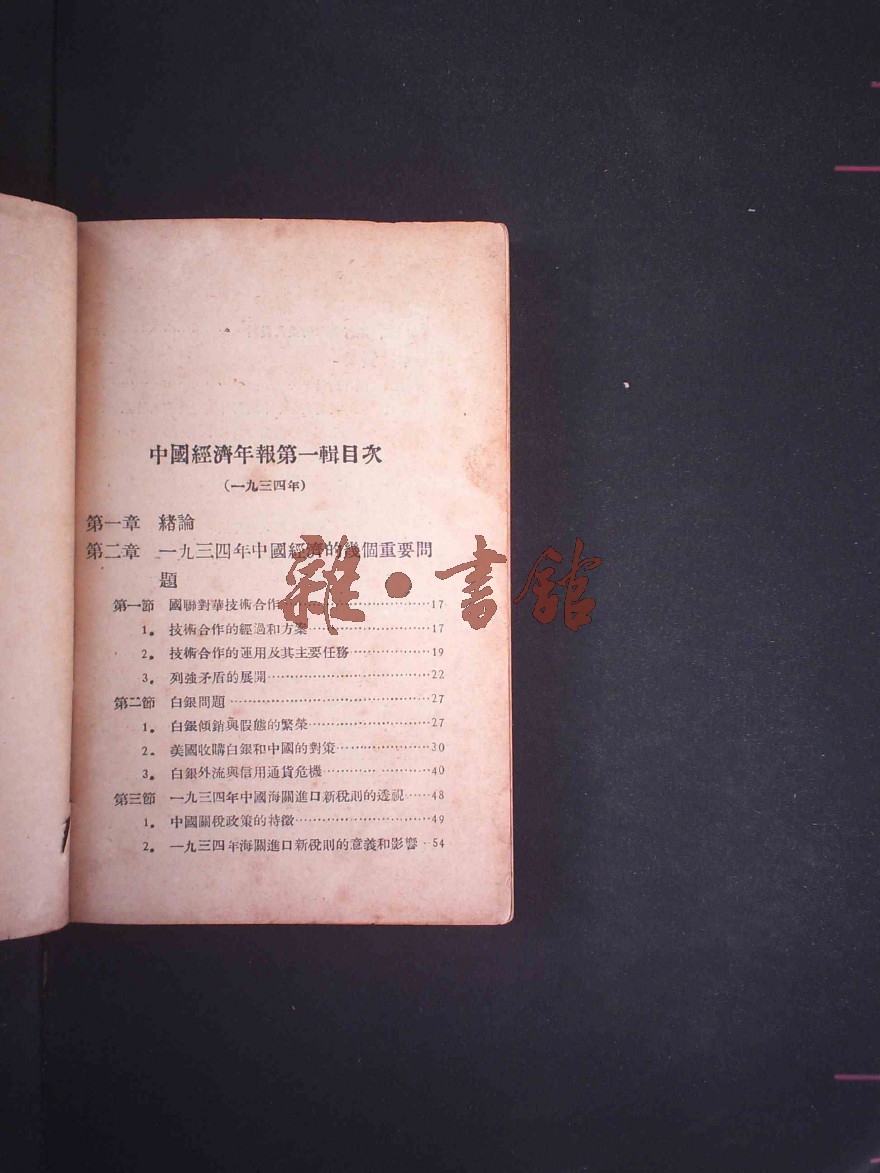 中國經濟年報第一輯目次
(一九三四年)
第一章 緒論
第二章 一九三四年中國經濟的幾個重要問
題
第一節 國聯對華技術合作……………………17
1. 技術合作的經過和方案……………………17
2. 技術合作的運用及其主要任務……………19
3. 列強矛盾的展開……………………………22
第二節 白銀問題………………………………27
1. 白銀傾銷與假態的繁榮……………………27
2. 美國收購白銀和中國的對策………………30
3. 白銀外流與信用通貨危機…………………40
第三節 一九三四年中國海關進口新稅則的透視……48
1. 中國關稅政策的特徵………………………49
2. 一九三四年海關進口新稅則的意義和影響·54
雜·書館